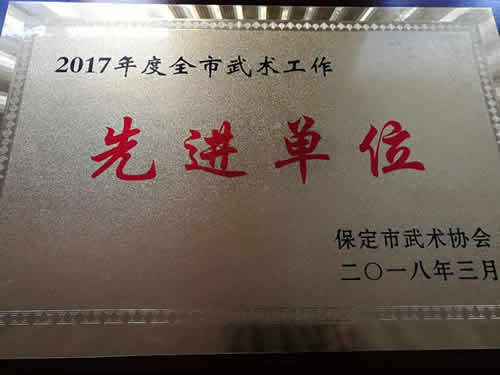 2017年度全市武术工作
先进单位
保定市武术协会
二〇一八年三月